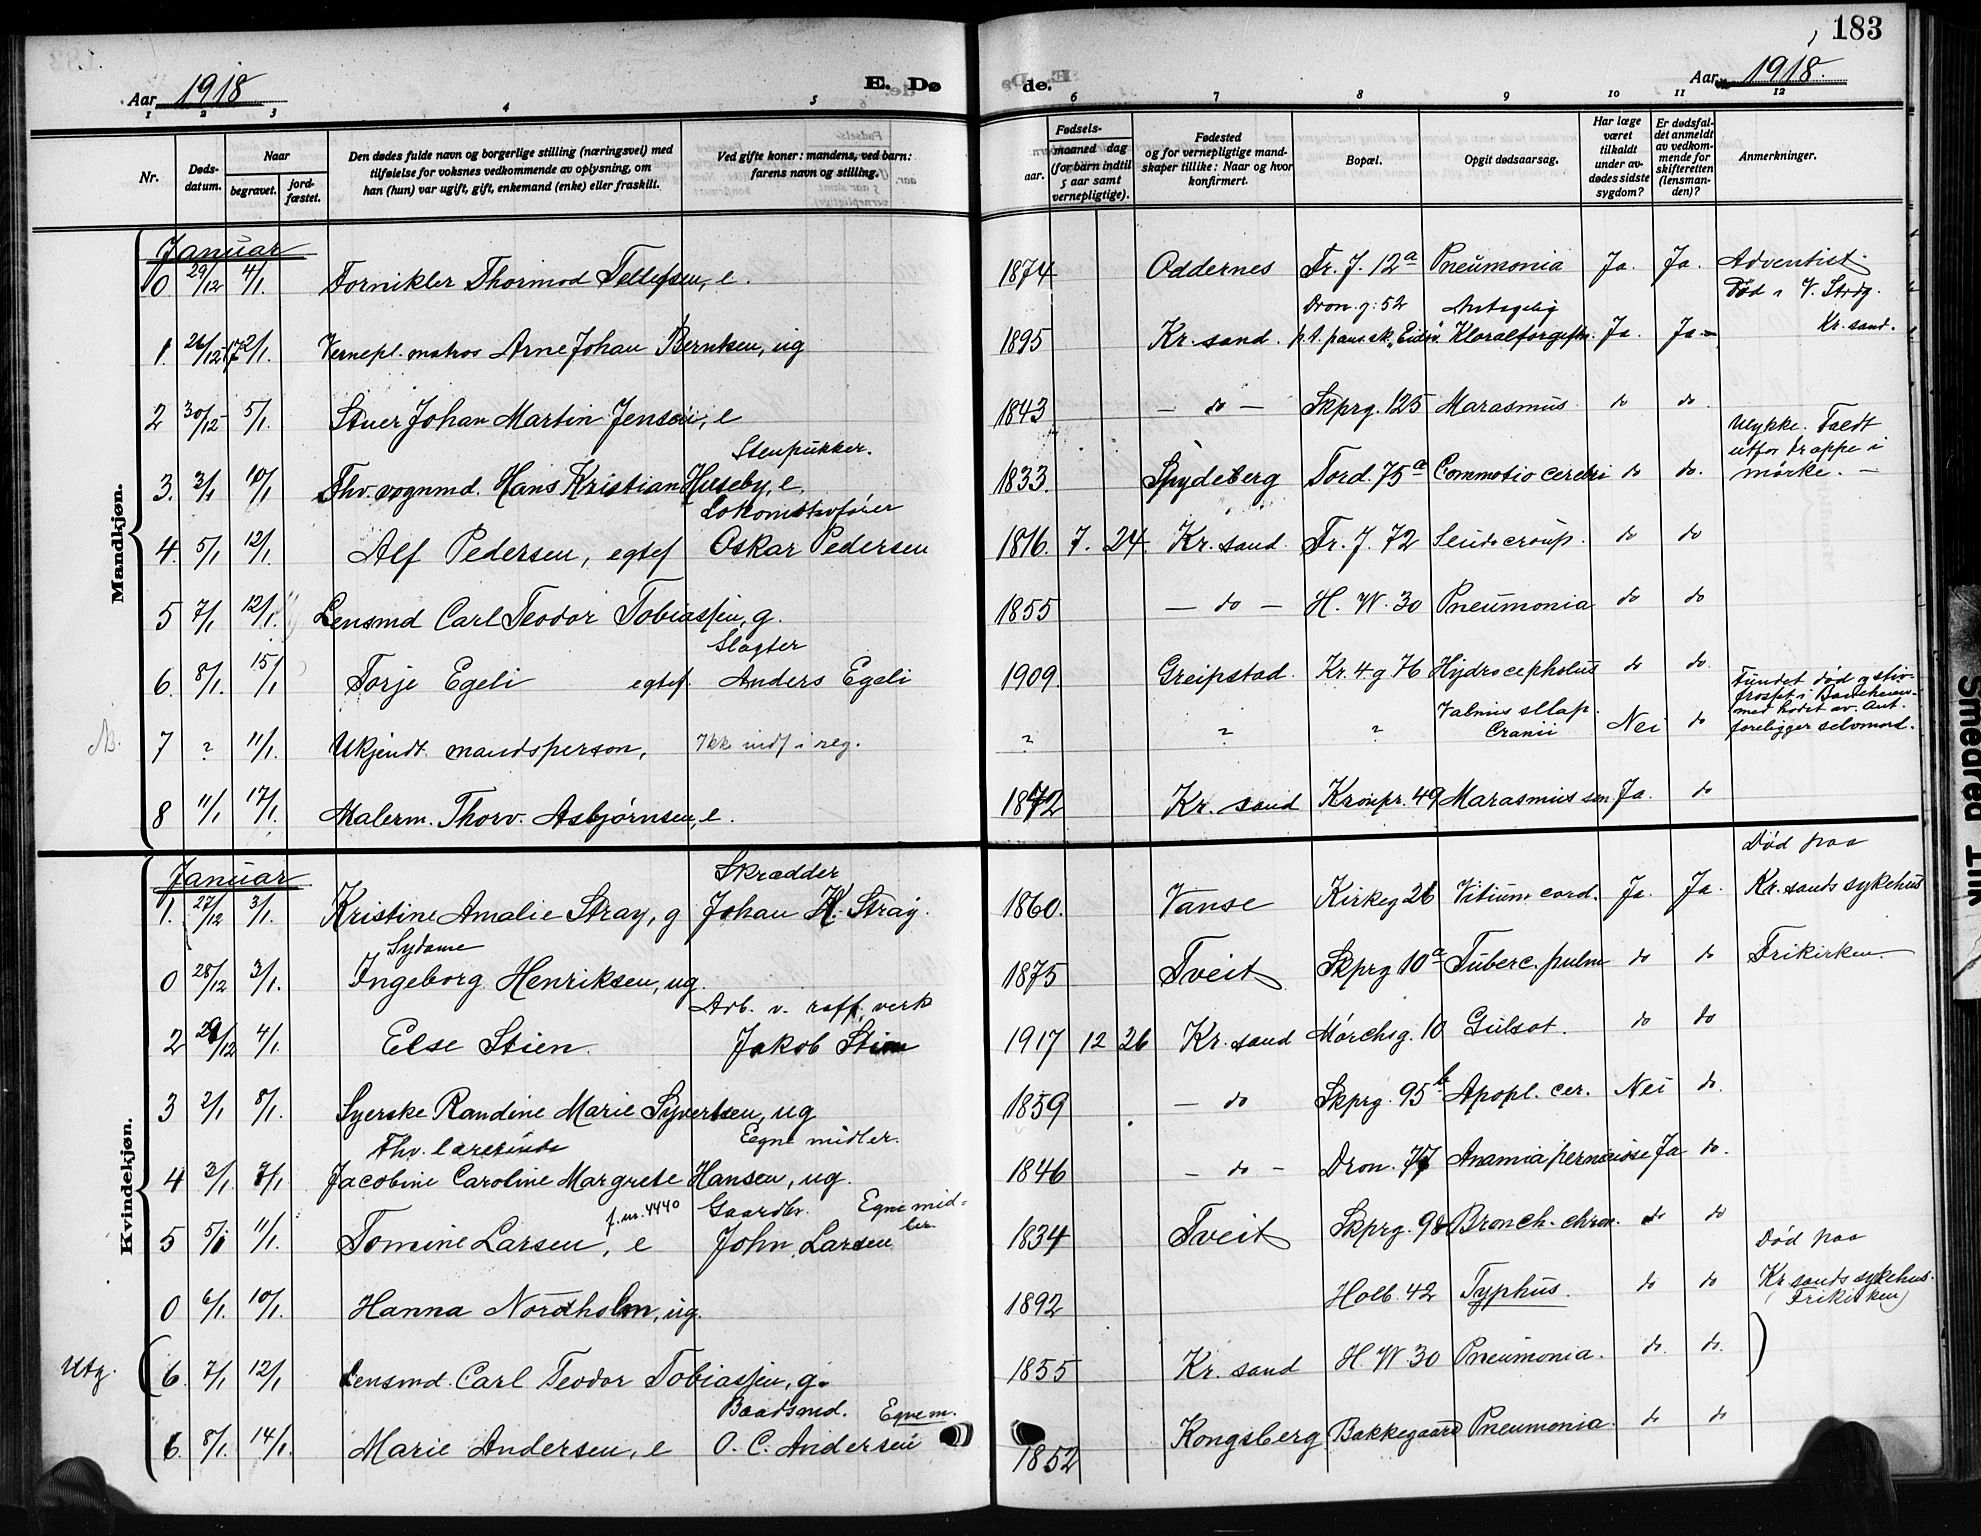 183
Aar 1918
E. Dø
de.
Aar 1918.
1 2 3 4 5 6 7 8 9 10 11 12
Nr.
Døds-
datum.
Naar
begravet.
jord-
fæstet.
Den dødes fulde navn og borgerlige stilling (næringsvei) med
tilføielse for voksnes vedkommende av oplysning, om
han (hun) var ugift, gift, enkemand (enke) eller fraskilt.
Ved gifte koner: mandens, ved barn:
farens navn og stilling.
Fødsels-
aar.
maaned dag
(for barn indtil
5 aar samt
vernepligtige).
Fødested
og for vernepligtige mand-
skaper tillike: Naar og hvor
konfirmert.
Bopæl.
Opgit dødsaarsag.
Har læge
været
tilkaldt
under av-
dødes sidste
sygdom?
Er dødsfal-
det anmeldt
av vedkom-
mende for
skifteretten
(lensman-
den)?
Anmerkninger.
Mandkjøn.
Januar
0 29/12 4/1. Fornikler Thormod Tellefsen, e. 1874 Oddernes Fr. J. 12a Pneumonia Ja. Ja. Adventist.
Død i V. Strdg.
Kr. sand.
Dron. g. 52 Antagelig
1. 26/12-17 2/1. Vernepl. matros Arne Johan Berntsen, ug 1895 Kr. sand. p.t. pansersk. „Eidsv. Kloralforgiftn. Ja. Ja
2 30/12 5/1. Stuer Johan Martin Jensen, e 1843 — do — Skprg. 125 Marasmus do do
Stenpukker.
Ulykke. Faldt
utfor trappe i
mørke. —
3. 3/1 10/1 Fhv. vognmd. Hans Kristian Huseby, e. 1833. Spydeberg Tord. 75a Commotio cerebri do do.
Lokomotivfører
4. 5/1 12/1. Alf Pedersen, egtef Oskar Pedersen 1816. 7. 24. Kr. sand. Fr. J. 72 Seudocroup. do do
5 7/1 12/1. Lensmd Carl Teodor Tobiassen, g. 1855 — do — H. W. 30 Pneumonia do do
Slagter
6. 8/1. 15/1 Torje Egeli egtef. Anders Egeli 1909. Greipstad. Kr. 4 g 76 Hydrocepholus do do.
Fundet død og stiv-
frosset i Banehaven
med hodet av. Ant.
foreligger selvmord.
NB. 7 ? 11/1. Ukjendt mandsperson, Ikke indf i reg. ? ? ? Cranii Nei do
8 11/1 17/1. Malerm. Thorv. Asbjørnsen, e. 1872 Kr. sand Kronpr. 49 Marasmus sen Ja. do
Kvindekjøn.
Januar
Skrædder
Død paa
Kr. sands sykehus
1. 27/12 3/1. Kristine Amalie Stray, g Johan K. Stray. 1860. Vanse Kirkeg 26 Vitium cord. Ja. Ja.
Sydame
0 28/12 3/1. Ingeborg Henriksen, ug. 1875 Tveit Skprg 10a Tuberc. pulm do do Frikirken.
Arb. v. raff. verk
2 29/12 4/1. Else Stien. Jakob Stien 1917 12 26 Kr. sand Mørchsg. 10 Gulsot. do do
3 2/1 8/1. Syerske Randine Marie Syvertsen, ug 1859 — do Skprg. 95b Apopl. cer. Nei do.
Fhv. lærerinde Egne midler.
4 3/1. 7/1. Jacobine Caroline Margrete Hansen, ug. 1846 — do — Dron. 77 Anamia perniciose Ja do.
f. nr. 4440 Gaardbr. Egne mid-
ler
5 5/1 11/1. Tomine Larsen, e John Larsen 1834 Tveit Skprg. 98 Bronch. chron. do do
Død paa
Kr. sands sykehus.
(Frikirken)
0 6/1. 10/1. Hanna Nordholm, ug. 1892 Holb. 42 Typhus. do do
Utg. (6. 7/1 12/1 Lensmd. Carl Teodor Tobiassen, g. 1855 Kr. sand H. W 30 Pneumonia. do. do. )
Baadsmd. Egne m.
6. 8/1. 14/1. Marie Andersen, e O. C. Andersen 1852 Kongsberg Bakkegaard Pneumonia. do do
Smedred